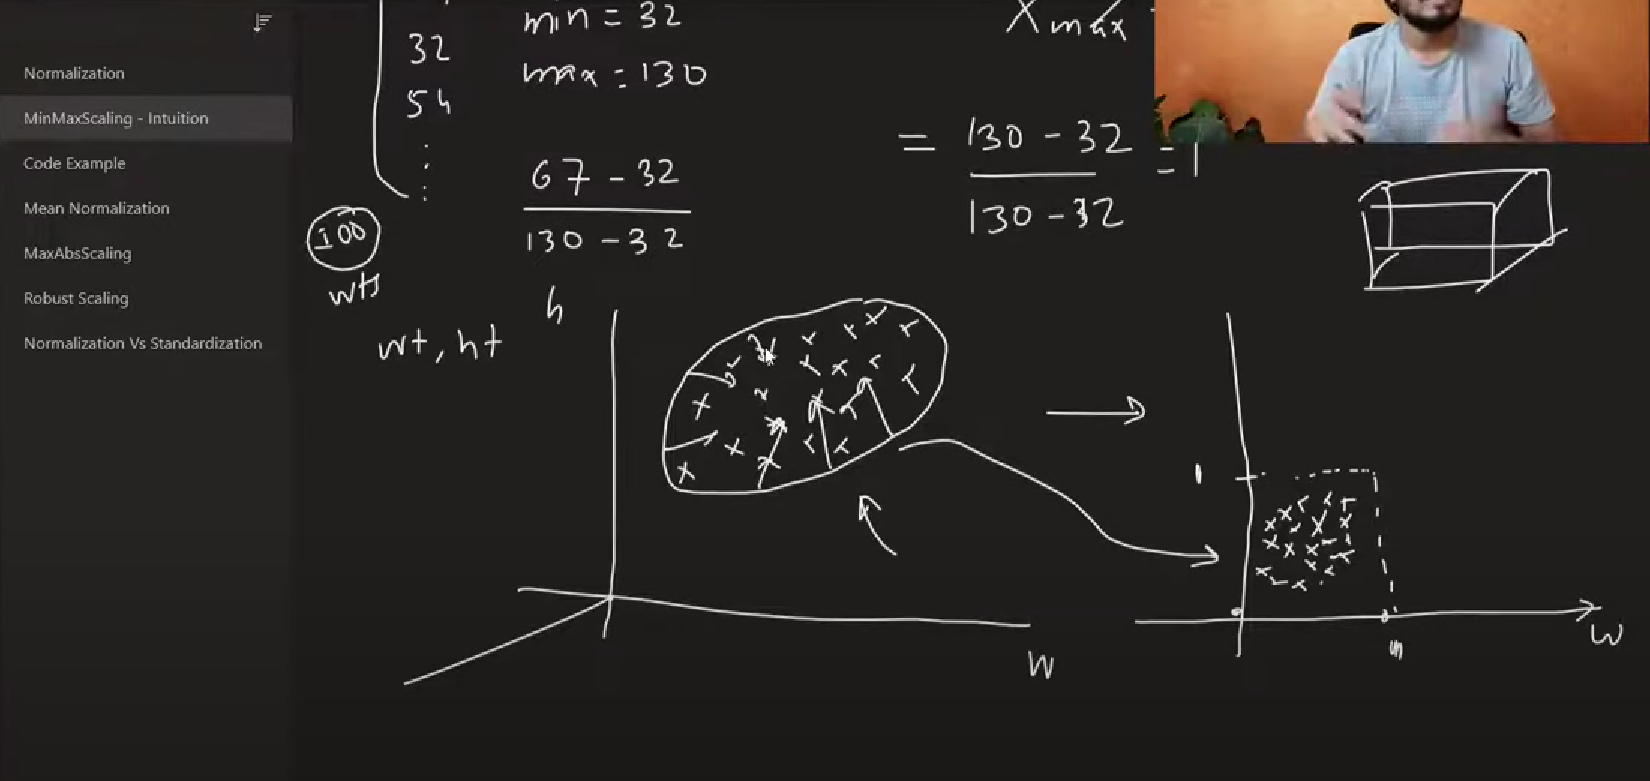 Normalization
MinMaxScaling - Intuition
Code Example
Mean Normalization
MaxAbsScaling
Robust Scaling
Normalization Vs Standardization
32
54
min = 32
max = 130
X max
67 - 32
130 - 32
= 130 - 32 = 1
130 - 32
100
wts
wt, ht
h
W
1
W